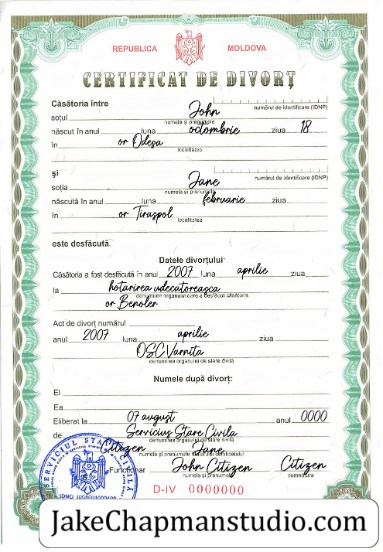 REPUBLICA MOLDOVA
CERTIFICAT DE DIVORȚ
Căsătoria între
numărul de identificare (IDNP)
soțul John
numele și prenumele
născut în anul luna octombrie ziua 18
în or Odesa
localitatea
și
numărul de identificare (IDNP)
soția Jane
numele și prenumele
născută în anul luna februarie ziua
în or Tiraspol
localitatea
este desfăcută.
Datele divorțului:
Căsătoria a fost desfăcută în anul 2007 luna aprilie ziua
la hotarirea
denumirea organului care a desfăcut căsătoria
or
Act de divorț numărul
anul 2007 luna aprilie ziua
OSC Varnita
denumirea organului de stare civilă
Numele după divorț:
El
Ea
Eliberat la 07 august anul 0000
de Serviciul Stare Civila
denumirea organului de stare civilă
Citizen Jane
numele și prenumele
Funcționar John Citizen Citizen
numele și prenumele semnătura
D-IV 0000000
JakeChapmanstudio.com